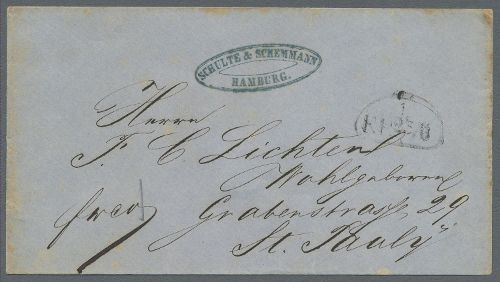 SCHULTE & SCHEMMANN
HAMBURG.
Herrn
F. C. Lichten
Wohlgeboren
frco
Grabenstrasse 29
St. Pauly